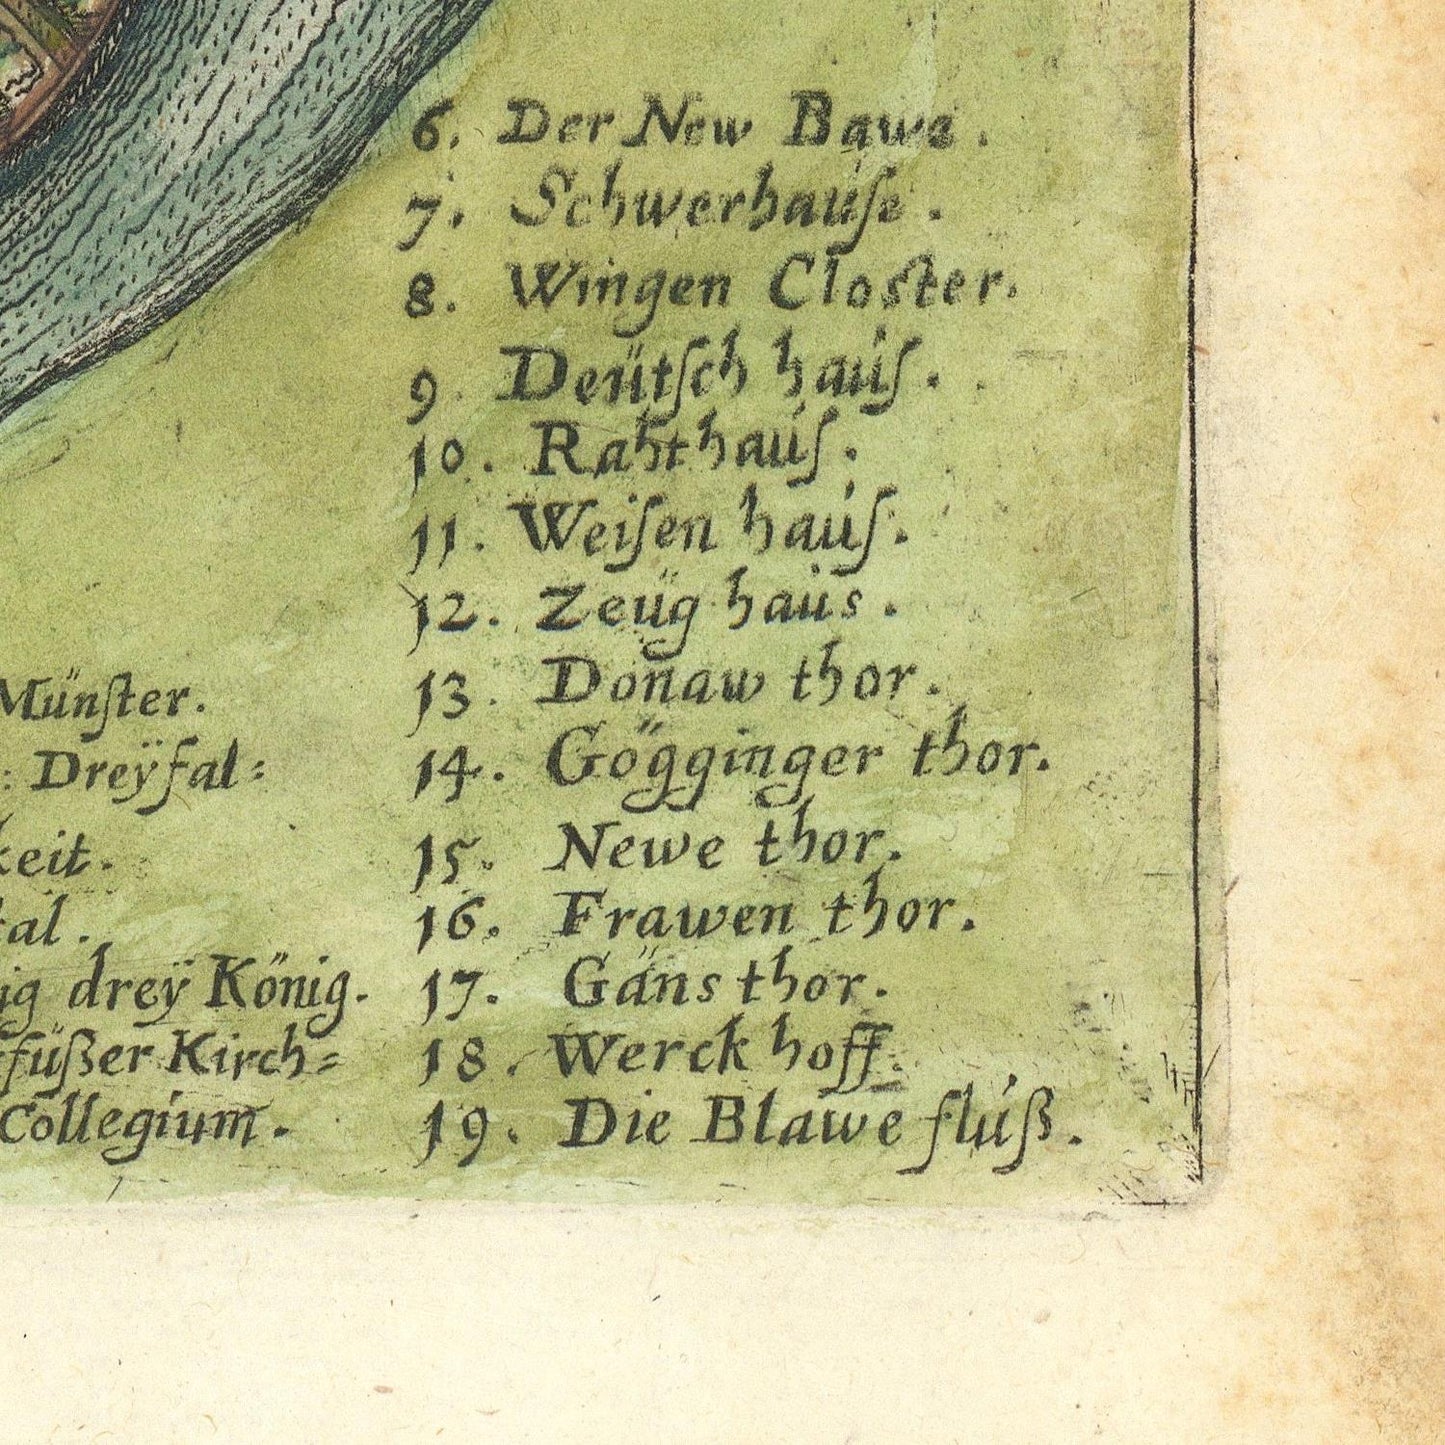 Münſter.
: Dreÿfal=
keit.
tal.
ig dreÿ König.
füßer Kirch=
Collegium.
6. Der New Bawe.
7. Schwerhauſe.
8. Wingen Cloſter.
9. Deütſch hauſ.
10. Rahthauſ.
11. Weiſen hauſ.
12. Zeüg haus.
13. Donaw thor.
14. Gögginger thor.
15. Newe thor.
16. Frawen thor.
17. Gäns thor.
18. Werck hoff.
19. Die Blawe fluß.